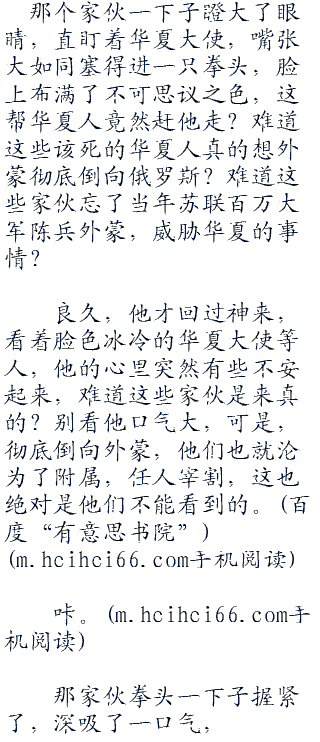 那个家伙一下子瞪大了眼
睛，直盯着华夏大使，嘴张
大如同塞得进一只拳头，脸
上布满了不可思议之色，这
帮华夏人竟然赶他走？难道
这些该死的华夏人真的想外
蒙彻底倒向俄罗斯？难道这
些家伙忘了当年苏联百万大
军陈兵外蒙，威胁华夏的事
情？
良久，他才回过神来，
看着脸色冰冷的华夏大使等
人，他的心里突然有些不安
起来，难道这些家伙是来真
的？别看他口气大，可是，
彻底倒向外蒙，他们也就沦
为了附属，任人宰割，这也
绝对是他们不能看到的。(百
度“有意思书院”)
(m.hcihci66.com手机阅读)
咔。(m.hcihci66.com手
机阅读)
那家伙拳头一下子握紧
了，深吸了一口气，